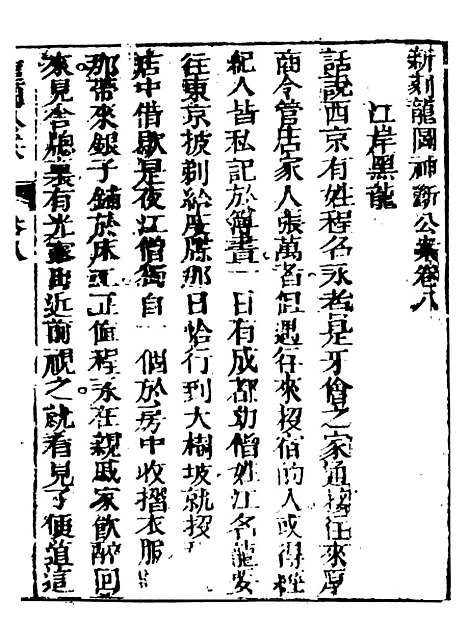 新刻龍圖神斷公案卷八
江岸黑龍
話說西京有姓程名永者是牙儈之家通接往來
商令管店家人張萬者但遇往來投宿的人或得經
紀人皆私記於簿書一日有成都幼僧姓江名龍要
往東京披剃給度牒那日恰行到大樹坡就投
店中借歇是夜江僧獨自一個於房中收摺衣服
那帶來銀子鋪於床上正值程永在親戚家飲醉回
來見窗內有光露出近前視之就看見了便道這
卷八